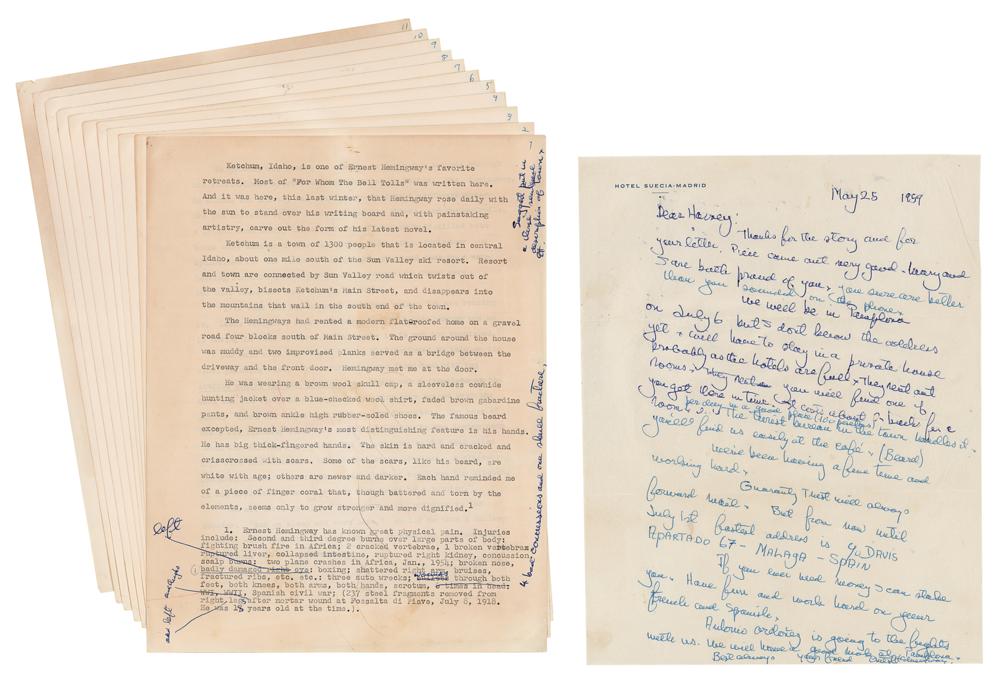 11
10
9
8
7
6
5
4
3
2
1
Ketchum, Idaho, is one of Ernest Hemingway's favorite
retreats. Most of "For Whom The Bell Tolls" was written here.
And it was here, this last winter, that Hemingway rose daily with
the sun to stand over his writing board and, with painstaking
artistry, carve out the form of his latest novel.
Ketchum is a town of 1300 people that is located in central
Idaho, about one mile south of the Sun Valley ski resort. Resort
and town are connected by Sun Valley road which twists out of
the valley, bisects Ketchum's Main Street, and disappears into
the mountains that wall in the south end of the town.
The Hemingways had rented a modern flat-roofed home on a gravel
road four blocks south of Main Street. The ground around the house
was muddy and two improvised planks served as a bridge between the
driveway and the front door. Hemingway met me at the door.
He was wearing a brown wool skull cap, a sleeveless cowhide
hunting jacket over a blue-checked wool shirt, faded brown gabardine
pants, and brown ankle high rubber-soled shoes. The famous beard
excepted, Ernest Hemingway's most distinguishing feature is his hands.
He has big thick-fingered hands. The skin is hard and cracked and
crisscrossed with scars. Some of the scars, like his beard, are
white with age; others are newer and darker. Each hand reminded me
of a piece of finger coral that, though battered and torn by the
elements, seems only to grow stronger and more dignified.1
1. Ernest Hemingway has known great physical pain. Injuries
include: Second and third degree burns over large parts of body;
fighting brush fire in Africa; 2 cracked vertebrae, 1 broken vertebrae,
ruptured liver, collapsed intestine, ruptured right kidney, concussion,
scalp burns; two plane crashes in Africa, Jan., 1954; broken nose,
badly damaged right eye; boxing; shattered right arm, bruises,
fractured ribs, etc. etc.; three auto wrecks; through both
feet, both knees, both arms, both hands, scrotum, 6 times in head;
WWI, WWII, Spanish civil war; (237 steel fragments removed from
right leg after mortar wound at Fossalta di Piave, July 8, 1918.
He was 18 years old at the time.).
Suggest put in
a description of town
4 bad concussions and one skull fracture
left
left
HOTEL SUECIA-MADRID
May 25 1959
Dear Harvey:
Thanks for the story and for
your letter. Piece came out very good. Mary and
I are both proud of you. you sure are better
than you sounded on the phone.
We will be in Pamplona
on July 6 but I don't know the address
yet. will have to stay in a private house
probably as the hotels are full. They rent out
rooms. They you will find one if
you get there in time. It costs about 2 bucks for a
room
per day in a good place (100 pesetas)
The tourist bureau in the town handles it.
you'll find us easily at the café. (Beard)
we've been having a fine time and
working hard.
Guaranty Trust will always
forward mail. But from now until
July 1st fastest address is % DAVIS
APARTADO 67 - MALAGA - SPAIN
If you ever need money I can stake
you. Have fun and work hard on your
French and Spanish.
Antonio Ordoñez is going to the fights
with us. We will have a good mob at Pamplona.
Best always your friend Ernest Hemingway